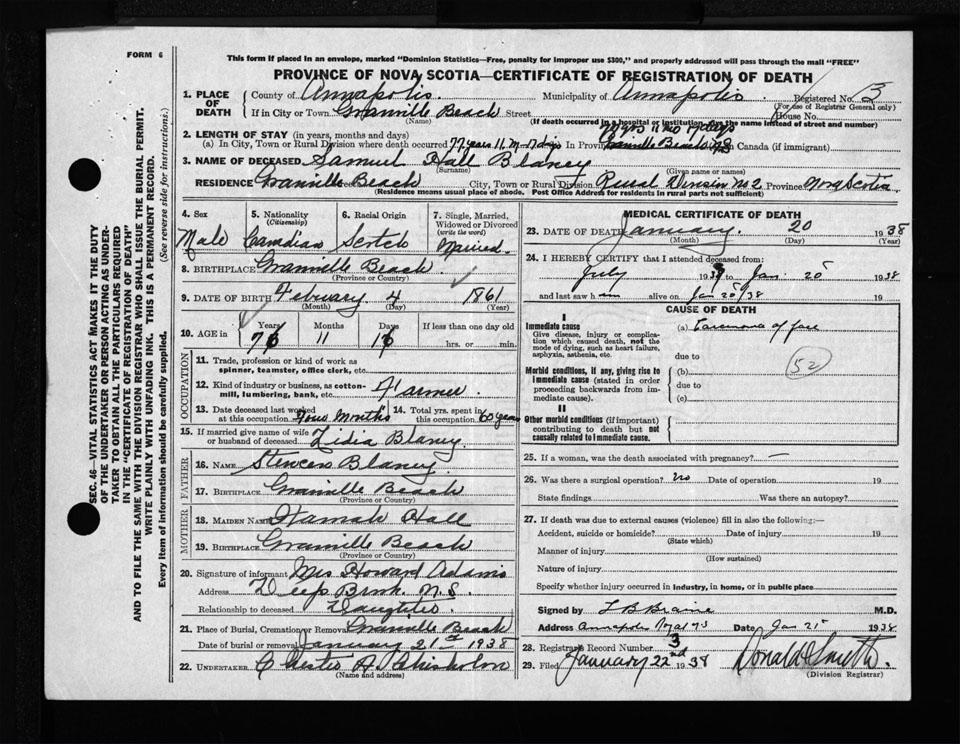 FORM 6
This form if placed in an envelope, marked "Dominion Statistics—Free, penalty for improper use $300," and properly addressed will pass through the mail "FREE"
PROVINCE OF NOVA SCOTIA—CERTIFICATE OF REGISTRATION OF DEATH
SEC. 46—VITAL STATISTICS ACT MAKES IT THE DUTY
OF THE UNDERTAKER OR PERSON ACTING AS UNDER-
TAKER TO OBTAIN ALL THE PARTICULARS REQUIRED
IN THE "CERTIFICATE OF REGISTRATION OF DEATH"
AND TO FILE THE SAME WITH THE DIVISION REGISTRAR WHO SHALL ISSUE THE BURIAL PERMIT.
WRITE PLAINLY WITH UNFADING INK. THIS IS A PERMANENT RECORD.
Every item of information should be carefully supplied. (See reverse side for instructions.)
1. PLACE OF DEATH
County of Annapolis Municipality of Annapolis Registered No. 3
(For use of Registrar General only)
If in City or Town Granville Beach Street House No.
(Name) (If death occurred in a hospital or institution, give the name instead of street and number)
2. LENGTH OF STAY (in years, months and days)
(a) In City, Town or Rural Division where death occurred 77 years 11 m 17 days In Province Granville Beach In Canada (if immigrant)
3. NAME OF DECEASED Samuel Hall Blaney
(Surname) (Given name or names)
RESIDENCE Granville Beach Street City, Town or Rural Division Rural Division No 2 Province Nova Scotia
(Residence means usual place of abode. Post Office Address for residents in rural parts not sufficient)
4. Sex
Male
5. Nationality
(Citizenship)
Canadian
6. Racial Origin
Scotch
7. Single, Married, Widowed or Divorced
(write the word)
Married
8. BIRTHPLACE Granville Beach
(Province or County)
9. DATE OF BIRTH February 4 1861
(Month) (Day) (Year)
10. AGE in Years Months Days If less than one day old
76 11 16 hrs. or min.
OCCUPATION
11. Trade, profession or kind of work as
spinner, teamster, office clerk, etc.
12. Kind of industry or business, as cotton-
mill, lumbering, bank, etc. Farmer
13. Date deceased last worked
at this occupation Four Months
14. Total yrs. spent in
this occupation 60 years
15. If married give name of wife
or husband of deceased Lidia Blaney
FATHER
16. NAME Blaney
17. BIRTHPLACE Granville Beach
(Province or Country)
MOTHER
18. MAIDEN NAME Hannah Hall
19. BIRTHPLACE Granville Beach
(Province or Country)
20. Signature of informant Mrs Howard Adams
Address Deep Brook N.S.
Relationship to deceased Daughter
21. Place of Burial, Cremation or Removal Granville Beach
Date of burial or removal January 21st 1938
22. UNDERTAKER Chester A Chisholm
(Name and address)
MEDICAL CERTIFICATE OF DEATH
23. DATE OF DEATH January 20 1938
(Month) (Day) (Year)
24. I HEREBY CERTIFY that I attended deceased from:
July 193 to Jan 20 1938
and last saw him alive on Jan 20/38 19
CAUSE OF DEATH
I
Immediate cause
Give disease, injury or complica-
tion which caused death, not the
mode of dying, such as heart failure,
asphyxia, asthenia, etc.
(a) Carcinoma of face
due to
Morbid conditions, if any, giving rise to
immediate cause (stated in order
proceeding backwards from im-
mediate cause).
(b)
52
due to
(c)
II
Other morbid conditions (if important)
contributing to death but not
causally related to immediate cause.
25. If a woman, was the death associated with pregnancy? —
26. Was there a surgical operation? no Date of operation 19
State findings Was there an autopsy?
27. If death was due to external causes (violence) fill in also the following:—
Accident, suicide or homicide? Date of injury 19
(State which)
Manner of injury
(How sustained)
Nature of injury
Specify whether injury occurred in industry, in home, or in public place
Signed by L B Braine M.D.
Address Annapolis Royal NS Date Jan 21 1938
28. Registrar's Record Number 3
29. Filed January 22nd 1938 Donald Smith
(Division Registrar)